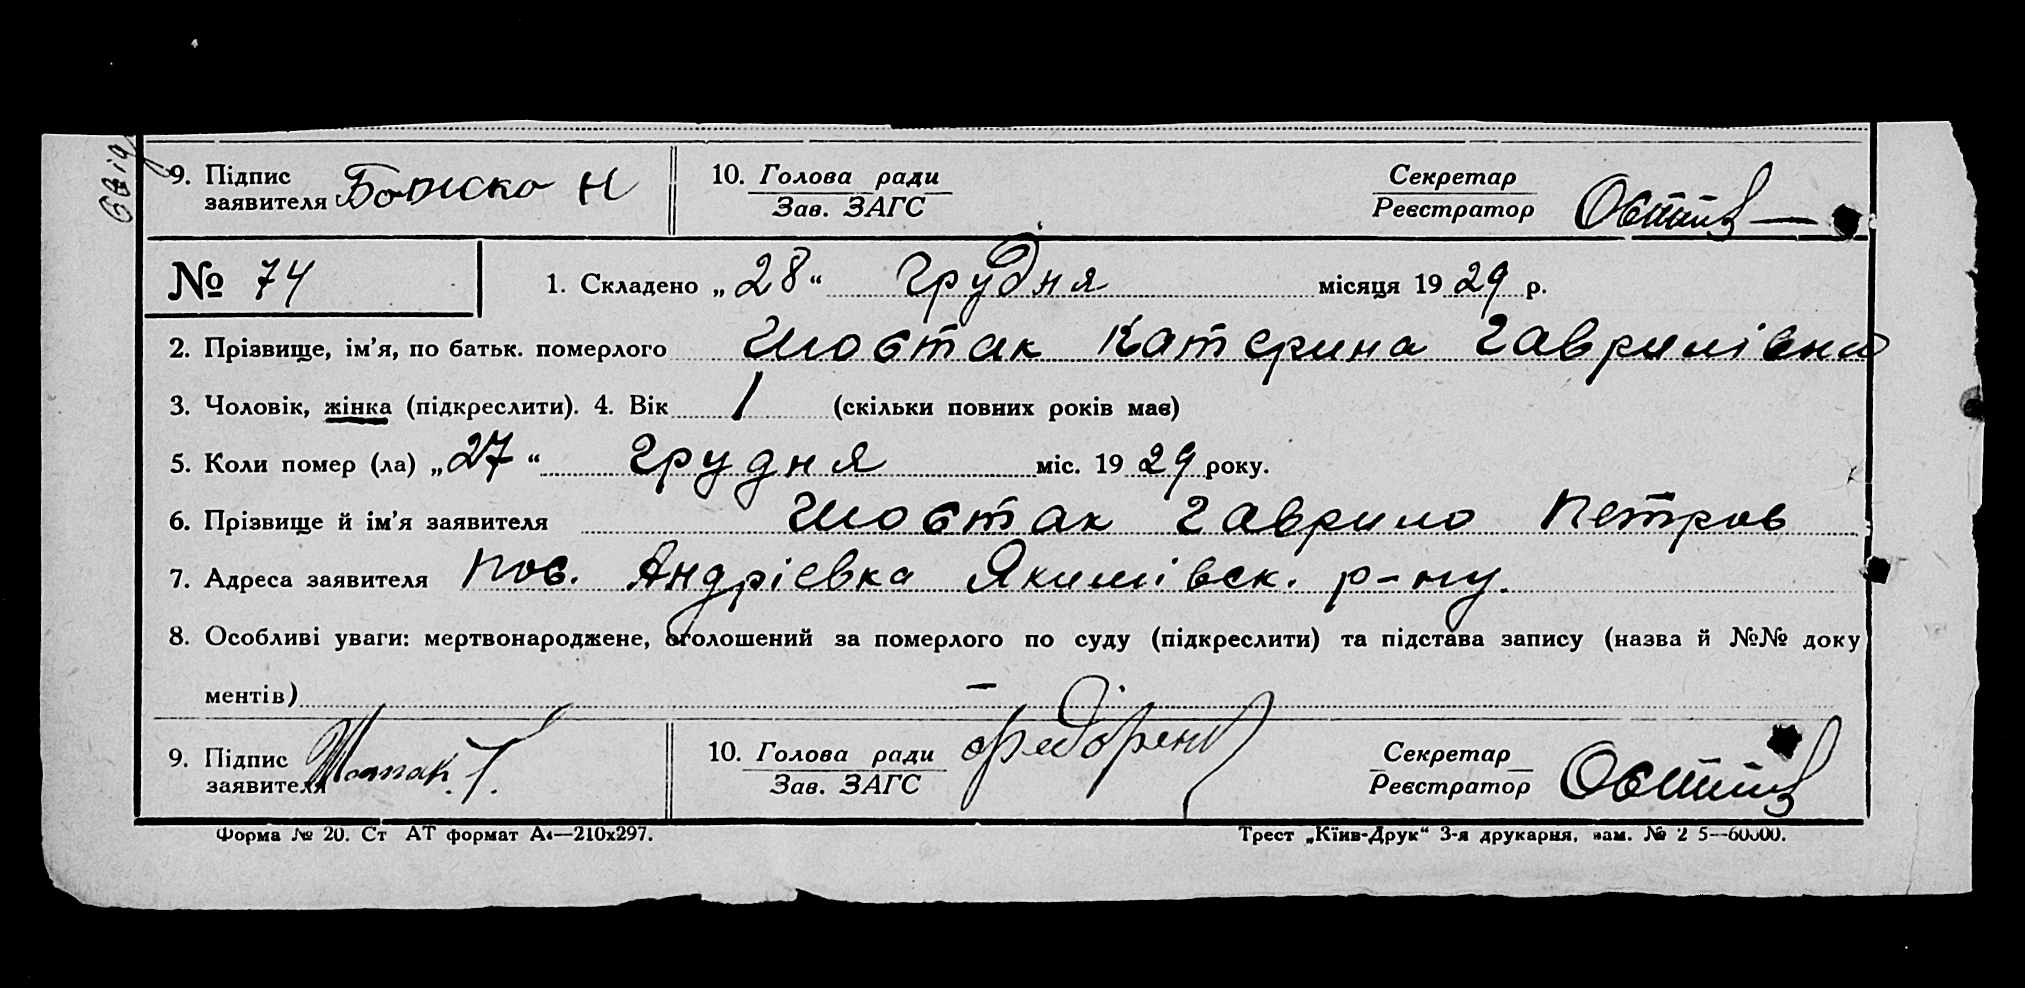 9. Підпис заявителя Божко Н 10. Голова ради Секретар
Зав. ЗАГС Реєстратор
№ 74 1. Складено „28“ Грудня місяця 1929 р.
2. Прізвище, ім’я, по батьк. померлого Шостак Катерина Гаврилівна
3. Чоловік, жінка (підкреслити). 4. Вік 1 (скільки повних років мав)
5. Коли помер (ла) „27“ Грудня міс. 1929 року.
6. Прізвище й ім’я заявителя Шостак Гаврило Петров
7. Адреса заявителя Андрієвка Якимівск. р-ну.
8. Особливі уваги: мертвонароджене, оголошений за померлого по суду (підкреслити) та підстава запису (назва й №№ доку
ментів) —
9. Підпис Шостак. Г. 10. Голова ради Секретар
заявителя Зав. ЗАГС Реєстратор
Форма № 20. Ст АТ формат А4—210х297. Трест „Київ-Друк“ 3-я друкарня, зам. №